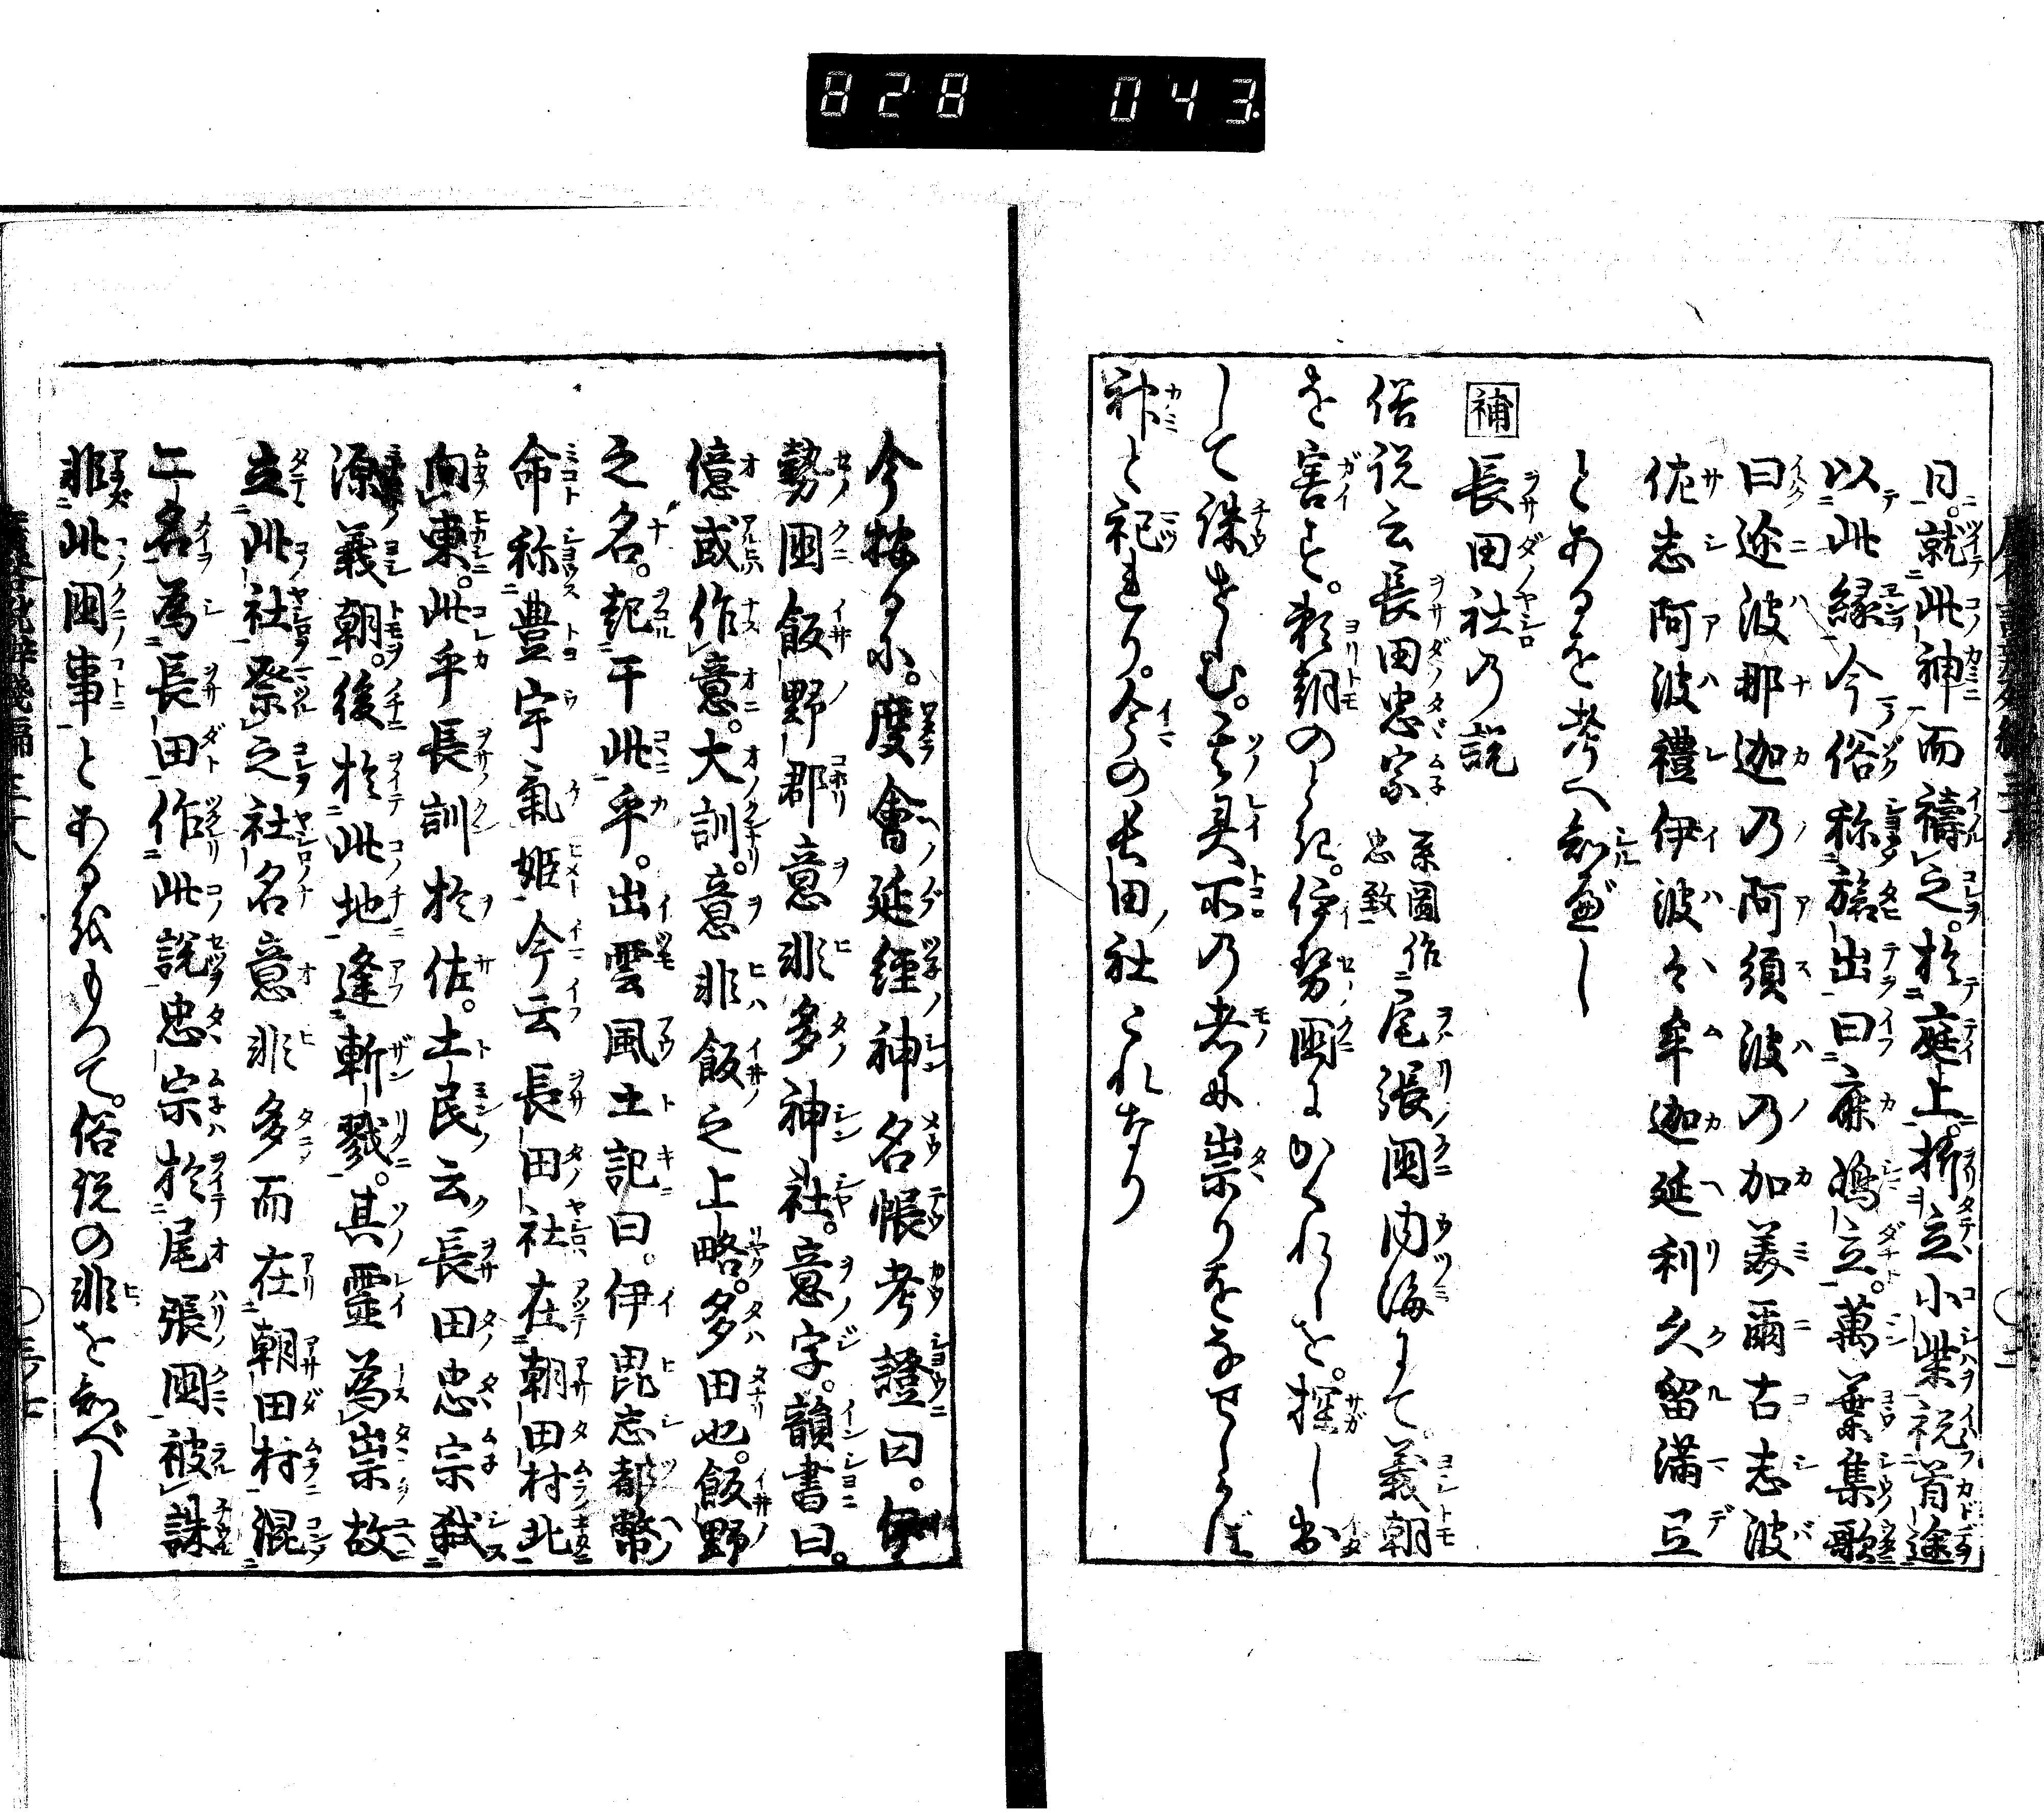 828 043
日。就此神而禱之。於庭上。折立小柴祝首途
以此縁今俗称旅出曰麻嶋立。萬葉集歌
曰迩波那迦乃阿須波乃加美爾古志波
佐志阿波禮伊波々牟迦延利久留滿弖
とあるを考へ知べし
補 長田社乃説
俗説云長田忠家系圖作忠致尾張國内海にて義朝
を害す。頼朝のとき。伊勢國にかくれしを。探し出
して誅せしむ。其灵所の者に祟りをなせしかば
神と祀まつれり。今の長田社これなり
今按るに。度會延經神名帳考證曰。伊
勢國飯野郡意非多神社。意字。韻書曰。
億或作意。大訓。意非飯之上略。多田也。飯野
之名。起于此乎。出雲風土記曰。伊毘志都幣
命称豊宇氣姫今云長田社在朝田村北
向東。此乎長訓於佐。土民云長田忠宗弑
源義朝。後於此地逢斬戮。其靈為祟故
立此社祭之社名意非多而在朝田村混
二名為長田作此説忠宗於尾張國被誅
非此國事とあるをもつて。俗説の非を知べし